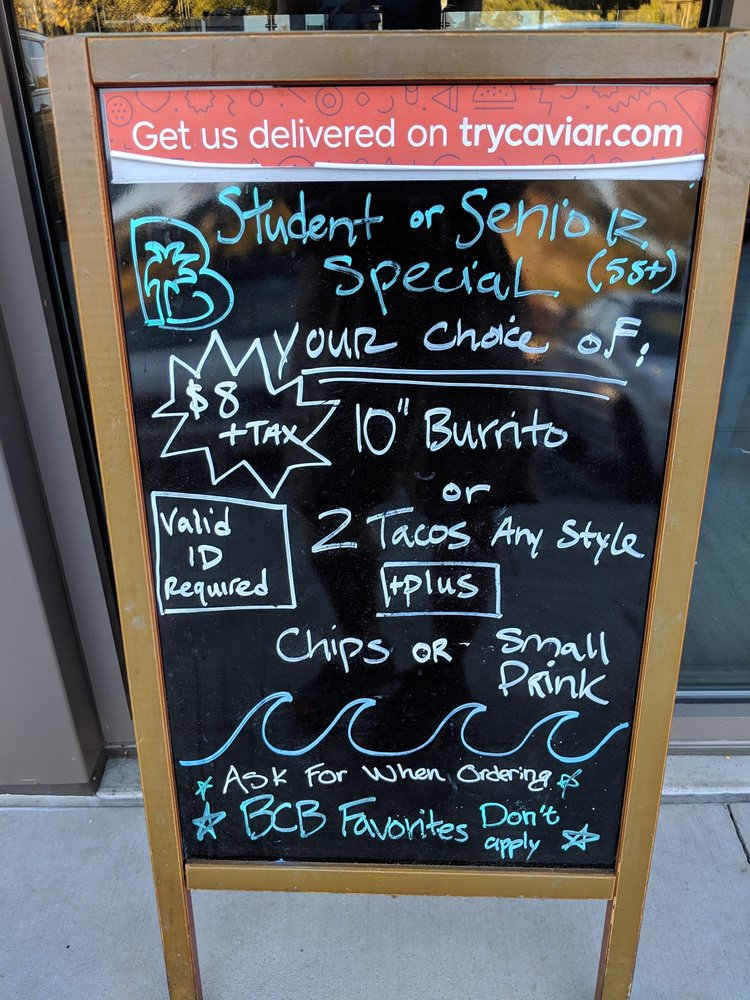 Get us delivered on trycaviar.com
B
Student or Senior
Special (55+)
Your Choice of:
$8
+TAX
10" Burrito
or
2 Tacos Any Style
Valid
ID
Required
+plus
Chips OR Small
Drink
Ask For When Ordering
BCB Favorites Don't
apply